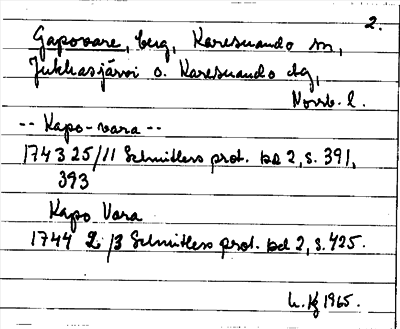 2.
Gapovare, berg, Karesuando sn,
Jukkasjärvi o. Karesuando dg,
Norrb. l.
-- Kapo-vara --
1743 25/11 Schnitlers prot. bd 2, s. 391,
393
Kapo Vara
1744 2/3 Schnitlers prot. bd 2, s. 425.
1965.